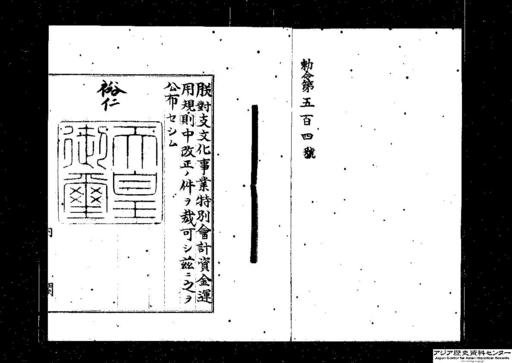 勅令第五百四號
朕對支文化事業特別會計資金運
用規則中改正ノ件ヲ裁可シ茲ニ之ヲ
公布セシム
裕仁
天皇
御璽
内
閣
アジア歴史資料センター
Japan Center for Asian Historical Records